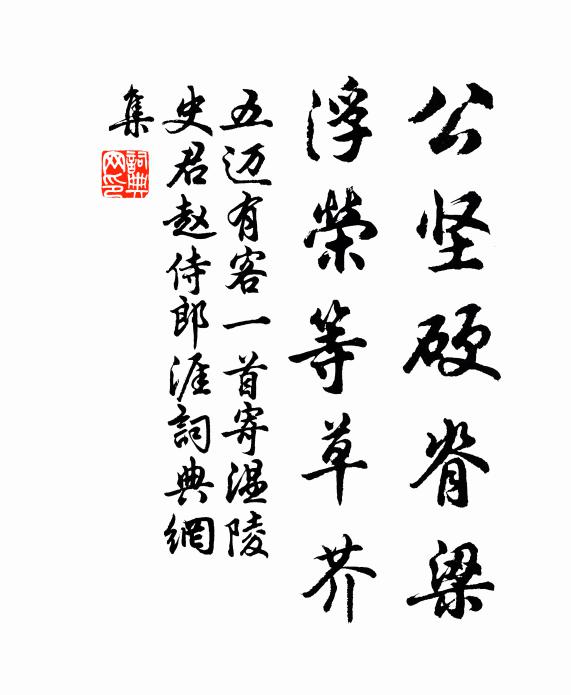 公坚硬脊梁
浮荣等草芥
五迈有客一首寄温陵
史君赵侍郎涯詞典網
集
詞典
网印